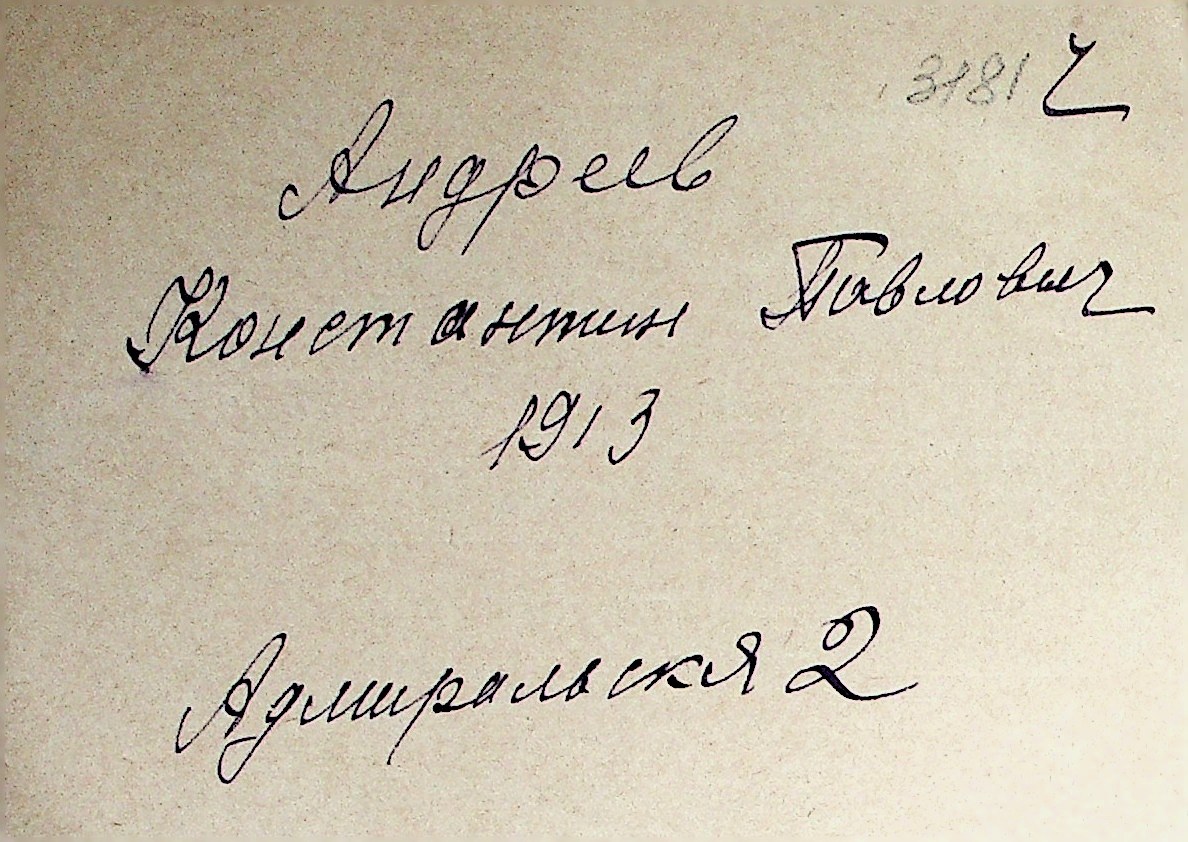 3181 ч
Андреев
Константин Павлович
1913
Адмиральскя 2